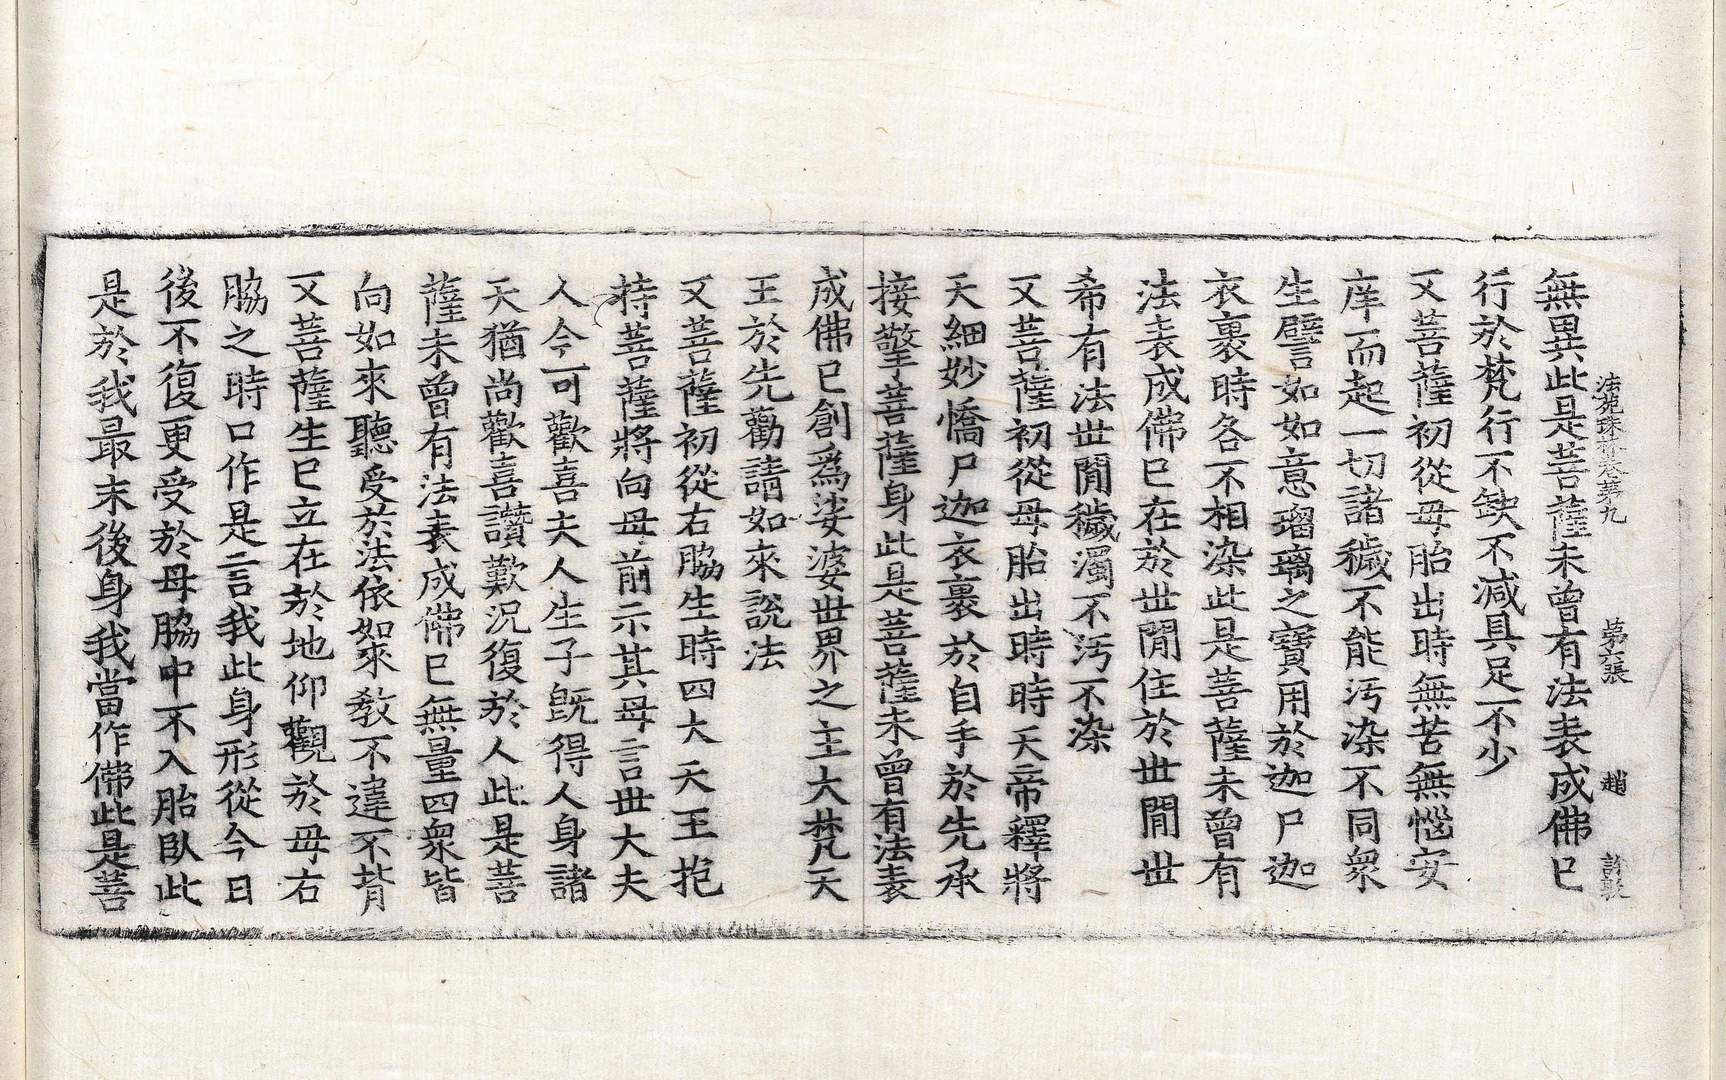 法苑珠林卷第九 第六張 趙
無異此是菩薩未曾有法表成佛已
行於梵行不缺不減具足不少
又菩薩初從母胎出時無苦無惱安
庠而起一切諸穢不能污染不同衆
生譬如如意瑠璃之寶用於迦尸迦
衣裹時各不相染此是菩薩未曾有
法表成佛已在於世閒住於世閒世
希有法世閒穢濁不污不染
又菩薩初從母胎出時時天帝釋將
天細妙憍尸迦衣裹於自手於先承
接擎菩薩身此是菩薩未曾有法表
成佛已創爲娑婆世界之主大梵天
王於先勸請如來說法
又菩薩初從右脇生時四大天王抱
持菩薩將向母前示其母言世大夫
人今可歡喜夫人生子旣得人身諸
天猶尚歡喜讚歎況復於人此是菩
薩未曾有法表成佛已無量四衆皆
向如來聽受於法依如來教不違不背
又菩薩生已立在於地仰觀於母右
脇之時口作是言我此身形從今日
後不復更受於母脇中不入胎臥此
是於我最末後身我當作佛此是菩